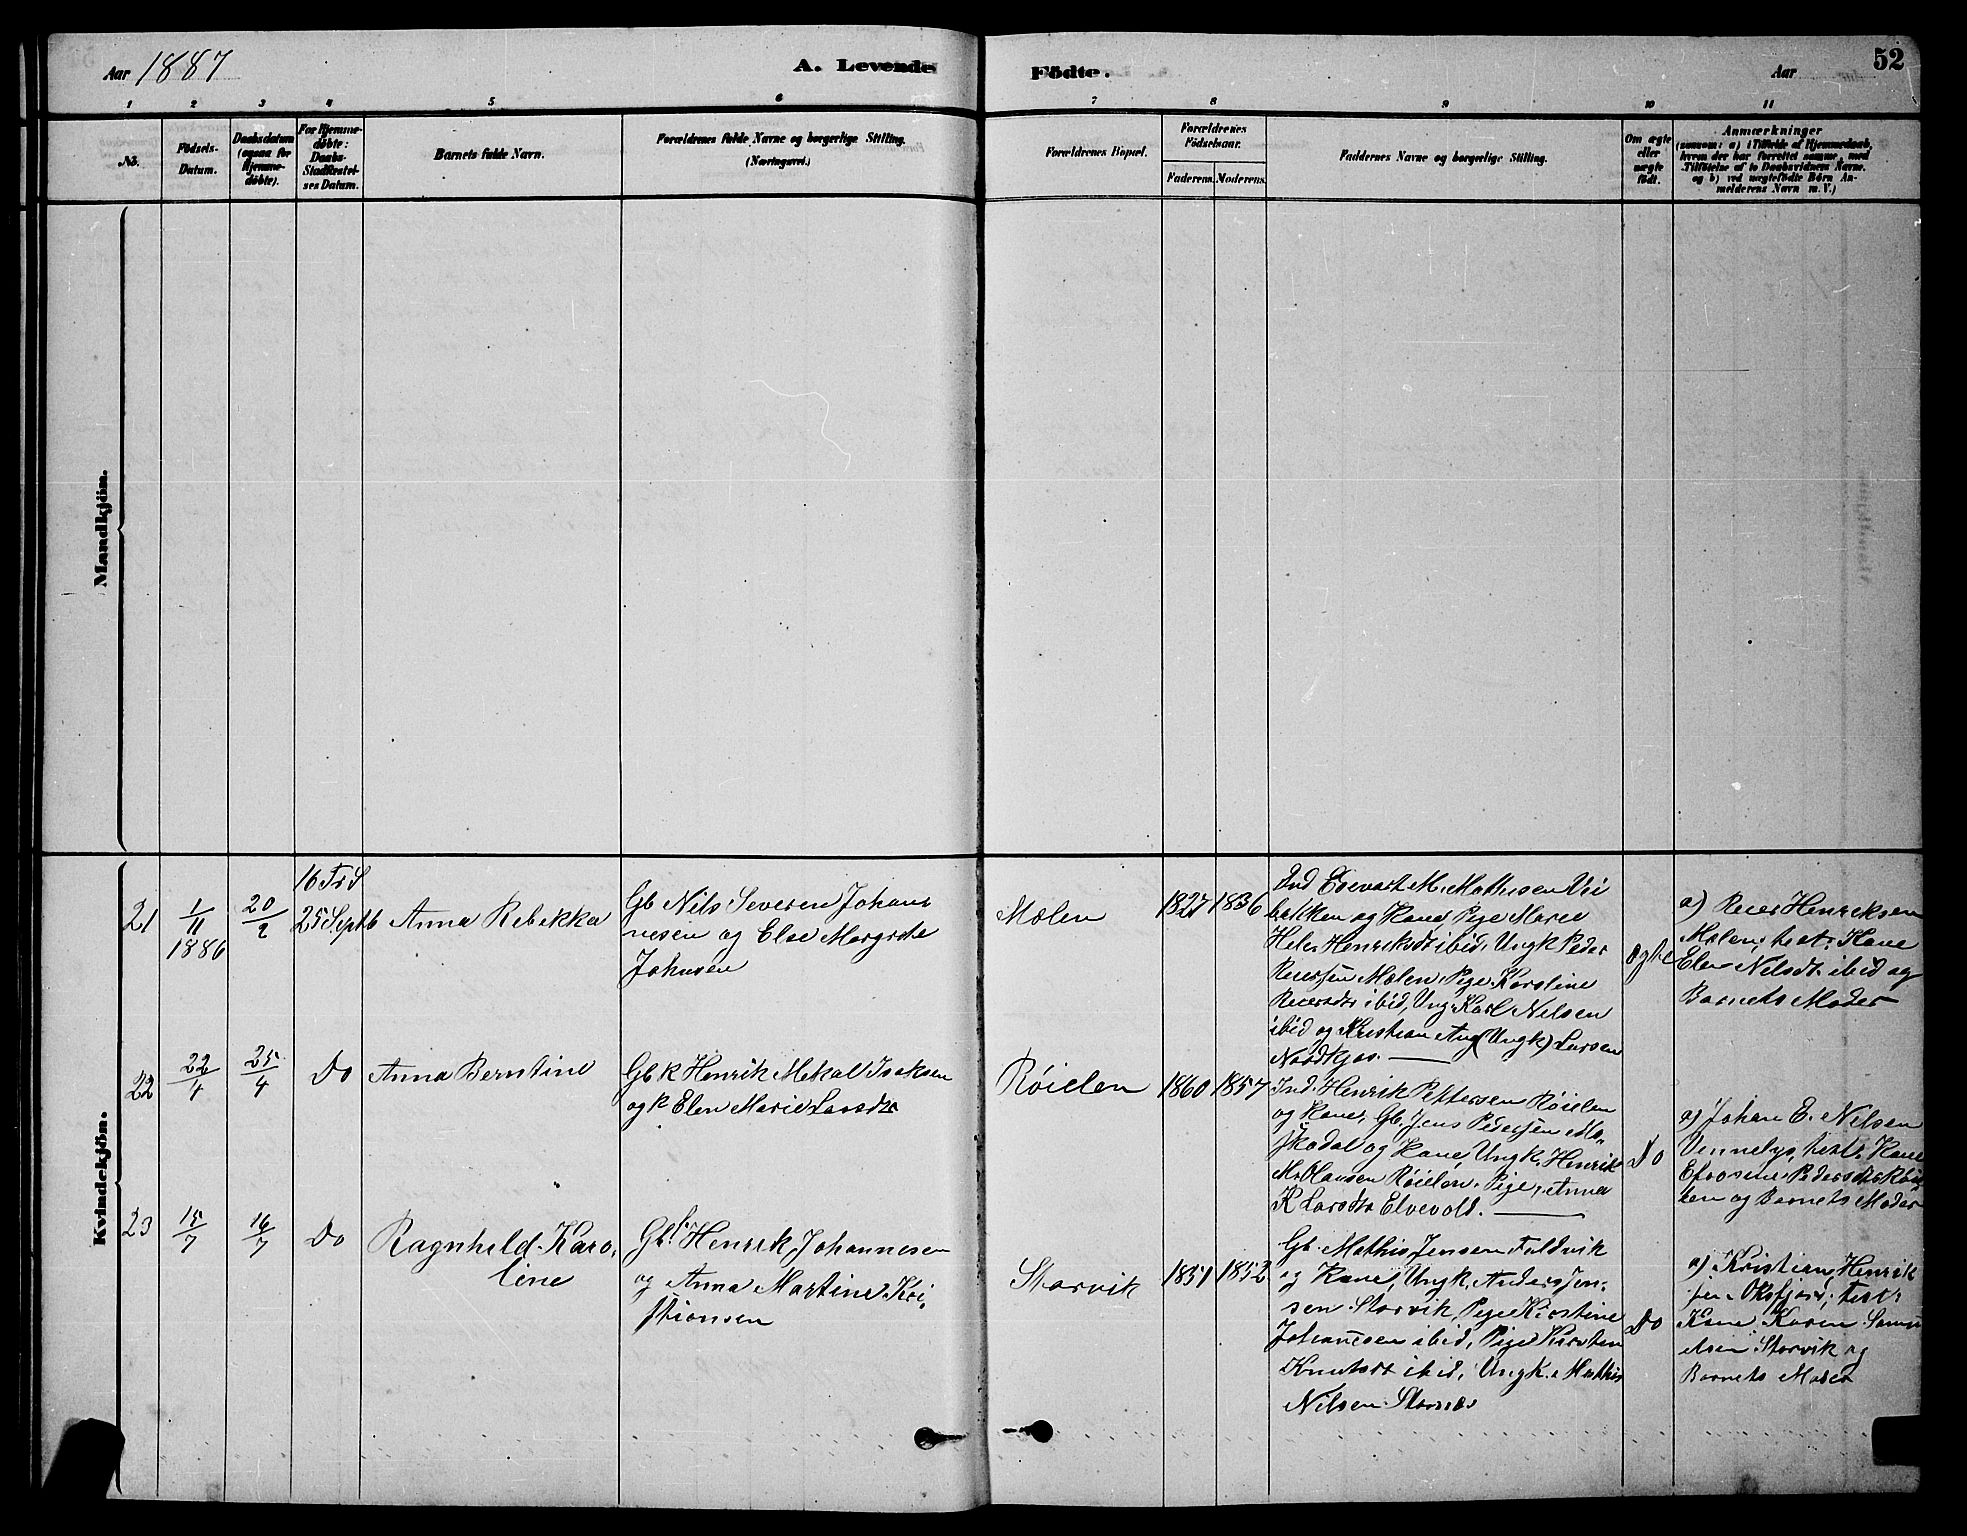 Aar 1887
A. Levende
Födte.
Aar
52
1 2 3 4 5 6 7 8 9 10 11
No.
Födsels-
Datum.
Daabsdatum
(ogsaa for
Hjemme-
döbte).
For Hjemme-
döbte:
Daabs-
Stadfæstel-
ses Datum.
Barnets fulde Navn.
Forældrenes fulde Navne og borgerlige Stilling.
(Næringsvei.)
Forældrenes Bopæl.
Forældrenes
Födselsaar.
Faderens. Moderens.
Faddernes Navne og borgerlige Stilling.
Om ægte
eller
uægte
födt.
Anmærkninger
(saasom: a) i Tilfælde af Hjemmedaab,
hvem der har forrettet samme, med
Tilföielse af to Daabsvidners Navne.
og b) ved uægtefödte Börn An-
melderens Navn m. V.)
Mandkjön.
Kvindekjön.
21
1/11
1886
20/2
16 Tr S
25 Septb
Anna Rebekka
Gb Nils Severen Johan
nesen og Else Margrete
Johnsen
Mælen
1827
1836
Ind Edevart M. Mathisen
bakken og Kane Pige Maree
Hele Henreksdt ibid, Ungk Peder
Reiersen Mælen, Pige Karoline
Reiersdtr ibid, Ung Karl Nilsen
ibid og Kristian Aug (Ungk) Larsen
Nordkjos.
ægte
a) Reier Henreksen
Mælen, test. Kane
Elen Nilsdt ibid og
Barnets Moder
22
22/4
25/4
Do
Anna Berntine
Gbk Henrik Mekal Isaksen
og k Elen Marie Larsdtr
Röielen
1860
1857
Ind. Henrik Pettersen Röielen
og Kane, Gb. Jens Pedersen Mo
skodal og Kane, Ungk. Henrik
M. Hansen Röielen. Pige, Anna
K Larsdtr Elvevold.
Do
a) Johan E. Nilsen
Vennelys, test. Kane
Efrosine Pedersdtr Röie
len og Barnets Moder
23
15/7
16/7
Do
Ragnhild Karo,
line
Gbf. Henrik Johannesen
og Anna Martine Kri,
stiansen
Storvik
1851
1852
Gb. Mathis Jensen Fuldvik
og Kane, Ungk. Anders Jen-
sen Storvik, Pige Kirstine
Johannesen ibid, Pige Kirsten
Knutsdt ibid, Ungk. Mathis
Nilsen Stornes
Do
a) Kristian Henrik
sen Oksfjord, test.
Kane Karen Samu
elsen Storvik og
Barnets Moder